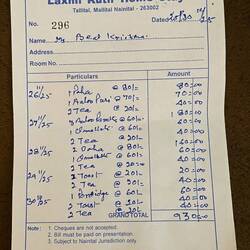 Laxmi Kuti Home Stay
Tallital, Mallital Nainital - 263002
No. 296 Dated 20/30 11/25
Name Mr Bed Krishna
Particulars Amount
26/25 1 Paha @ 80/= 80=00
1 Aaloo Puri @ 70/= 70=00
2 Tea 40=00
27/25 1 Aaloo @ 60/= 60=00
1 Omellet @ 60/= 60=00
2 Tea 40=00
28/25 2 @ 80/=
1 Omellet @ 60/= 60=00
2 Tea 40=00
29/25 2 Toast @ 40=00
2 Tea 40=00
30/25 1 Porridge @ 60/=
2 Toast @ 20/= 40=00
2 Tea @ 20/= 40=00
GRAND TOTAL 930=00
Note :
1. Cheques are not accepted.
2. Bill must be paid on presentation.
3. Subject to Nainital Jurisdiction only.